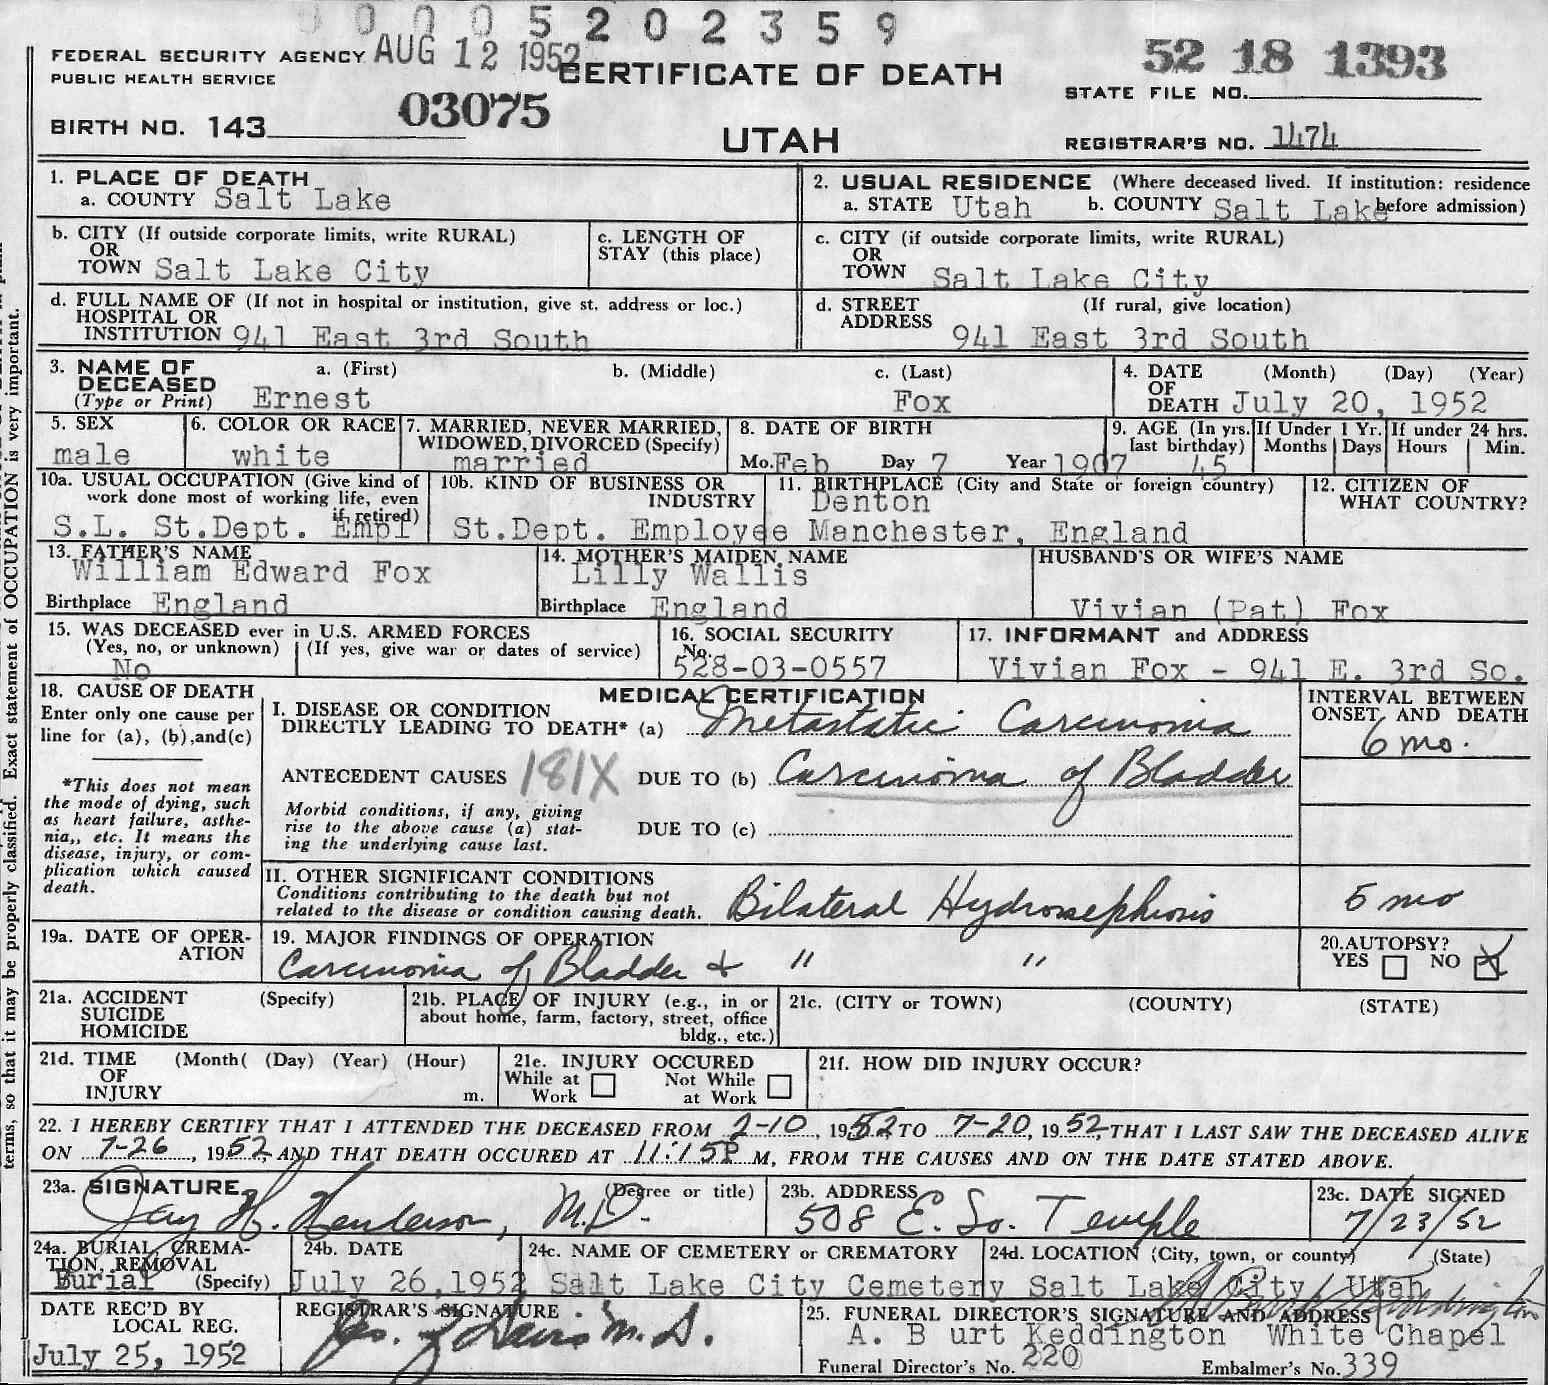 0 0 0 0 5 2 0 2 3 5 9
FEDERAL SECURITY AGENCY AUG 12 1952 CERTIFICATE OF DEATH 52 18 1393
PUBLIC HEALTH SERVICE
STATE FILE NO.
03075
BIRTH NO. 143
UTAH
REGISTRAR'S NO. 1474
1. PLACE OF DEATH
a. COUNTY Salt Lake
2. USUAL RESIDENCE (Where deceased lived. If institution: residence before admission)
a. STATE Utah b. COUNTY Salt Lake
b. CITY (If outside corporate limits, write RURAL)
OR
TOWN Salt Lake City
c. LENGTH OF
STAY (this place)
c. CITY (if outside corporate limits, write RURAL)
OR
TOWN Salt Lake City
d. FULL NAME OF (If not in hospital or institution, give st. address or loc.)
HOSPITAL OR
INSTITUTION 941 East 3rd South
d. STREET (If rural, give location)
ADDRESS 941 East 3rd South
3. NAME OF a. (First) b. (Middle) c. (Last)
DECEASED
(Type or Print) Ernest Fox
4. DATE (Month) (Day) (Year)
OF
DEATH July 20, 1952
5. SEX
male
6. COLOR OR RACE
white
7. MARRIED, NEVER MARRIED,
WIDOWED, DIVORCED (Specify)
married
8. DATE OF BIRTH
Mo. Feb Day 7 Year 1907
9. AGE (In yrs.
last birthday)
45
If Under 1 Yr.
Months Days
If under 24 hrs.
Hours Min.
10a. USUAL OCCUPATION (Give kind of
work done most of working life, even
if retired)
S.L. St.Dept. Empl
10b. KIND OF BUSINESS OR
INDUSTRY
St.Dept. Employee
11. BIRTHPLACE (City and State or foreign country)
Denton
Manchester, England
12. CITIZEN OF
WHAT COUNTRY?
13. FATHER'S NAME
William Edward Fox
Birthplace England
14. MOTHER'S MAIDEN NAME
Lilly Wallis
Birthplace England
HUSBAND'S OR WIFE'S NAME
Vivian (Pat) Fox
15. WAS DECEASED ever in U.S. ARMED FORCES
(Yes, no, or unknown) (If yes, give war or dates of service)
No
16. SOCIAL SECURITY
No.
528-03-0557
17. INFORMANT and ADDRESS
Vivian Fox - 941 E. 3rd So.
18. CAUSE OF DEATH
Enter only one cause per
line for (a), (b), and (c)
*This does not mean
the mode of dying, such
as heart failure, asthe-
nia,, etc. It means the
disease, injury, or com-
plication which caused
death.
MEDICAL CERTIFICATION
I. DISEASE OR CONDITION
DIRECTLY LEADING TO DEATH* (a) Metastatic Carcinonia
INTERVAL BETWEEN
ONSET AND DEATH
6 mo.
ANTECEDENT CAUSES 181X DUE TO (b) Carcinoma of Bladder
Morbid conditions, if any, giving
rise to the above cause (a) stat-
ing the underlying cause last.
DUE TO (c)
II. OTHER SIGNIFICANT CONDITIONS
Conditions contributing to the death but not
related to the disease or condition causing death.
Bilateral Hydronephrosis
5 mo
19a. DATE OF OPER-
ATION
19. MAJOR FINDINGS OF OPERATION
Carcinonia of Bladder & " "
20. AUTOPSY?
YES NO
21a. ACCIDENT (Specify)
SUICIDE
HOMICIDE
21b. PLACE OF INJURY (e.g., in or
about home, farm, factory, street, office
bldg., etc.)
21c. (CITY or TOWN) (COUNTY) (STATE)
21d. TIME (Month( (Day) (Year) (Hour)
OF
INJURY m.
21e. INJURY OCCURED
While at Not While
Work at Work
21f. HOW DID INJURY OCCUR?
22. I HEREBY CERTIFY THAT I ATTENDED THE DECEASED FROM 2-10, 1952 TO 7-20, 1952, THAT I LAST SAW THE DECEASED ALIVE
ON 7-26, 1952, AND THAT DEATH OCCURED AT 11:15P M, FROM THE CAUSES AND ON THE DATE STATED ABOVE.
23a. SIGNATURE (Degree or title)
Jay H. Henderson, M.D.
23b. ADDRESS
508 E. So. Temple
23c. DATE SIGNED
7/23/52
24a. BURIAL, CREMA-
TION, REMOVAL
Burial (Specify)
24b. DATE
July 26, 1952
24c. NAME OF CEMETERY or CREMATORY
Salt Lake City Cemetery
24d. LOCATION (City, town, or county) (State)
Salt Lake City, Utah
DATE REC'D BY
LOCAL REG.
July 25, 1952
REGISTRAR'S SIGNATURE
M.D.
25. FUNERAL DIRECTOR'S SIGNATURE AND ADDRESS
A. B urt Keddington White Chapel
Funeral Director's No. 220 Embalmer's No. 339
terms, so that it may be properly classified. Exact statement of OCCUPATION is very important.